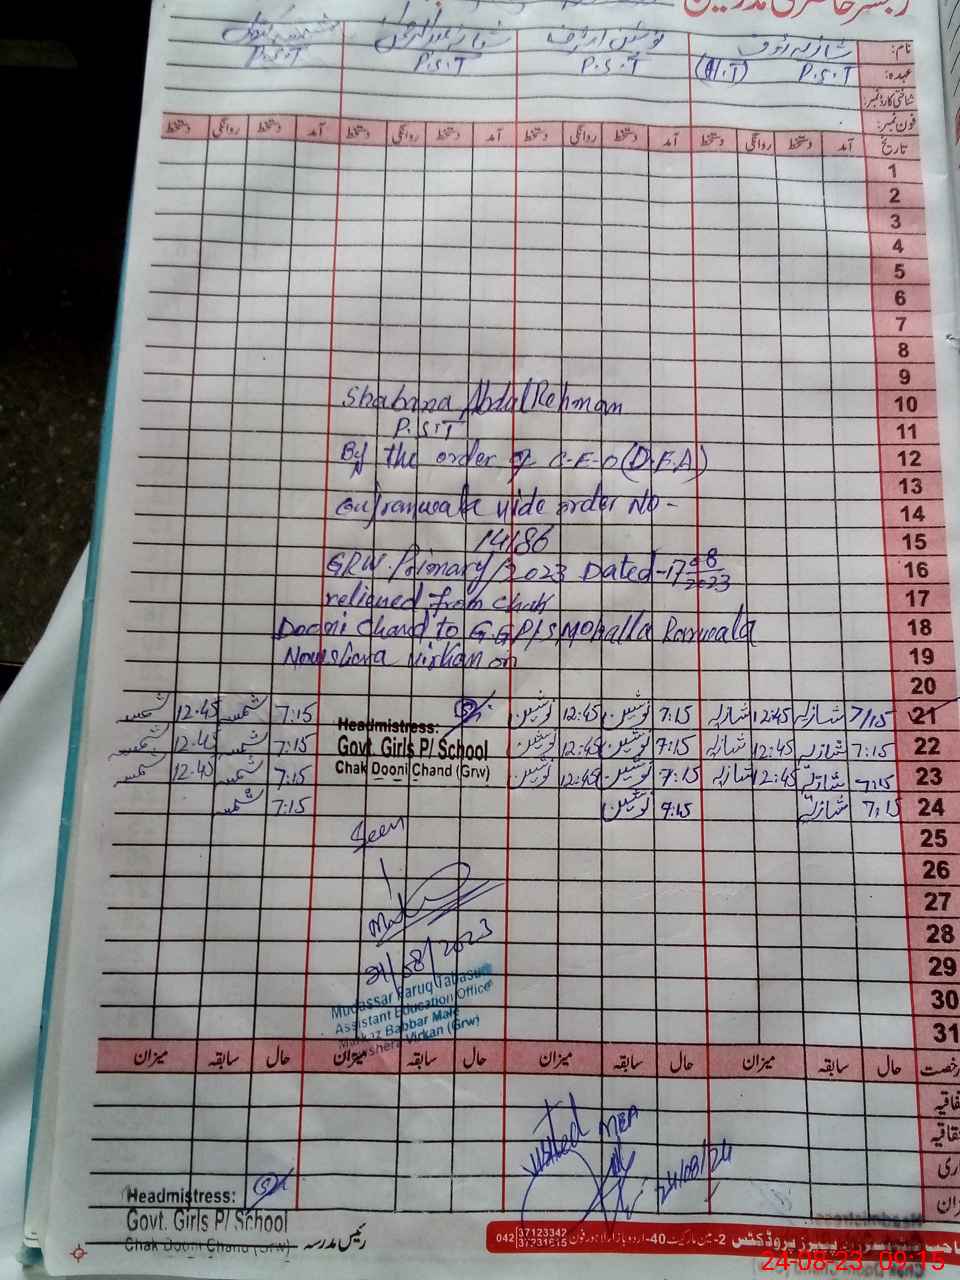 رجسٹر حاضری مدرسین
نام: شازیہ رؤف نوشین اشرف
عہدہ: P.S.T (H.T) P.S.T P.S.T P.S.T
شناختی کارڈ نمبر:
فون نمبر:
تاریخ آمد دستخط روانگی دستخط آمد دستخط روانگی دستخط آمد دستخط روانگی دستخط آمد دستخط روانگی دستخط
1
2
3
4
5
6
7
8
9
Shabana Abdul Rehman 10
P.S.T 11
By the order of C.E.O (D.E.A) 12
13
Gujranwala vide order No - 14
14186 15
GRW. Primary/2023 Dated-17 08/2023 16
relieved from Chak 17
Dooni Chand to G.GP/S Mohalla 18
Nowshera Virkan on 19
20
21 7:15 شازیہ 12:45 شازیہ 7:15 نوشین 12:45 نوشین 7:15 شمسہ 12:45 شمسہ
22 7:15 شازیہ 12:45 شازیہ 7:15 نوشین 12:45 نوشین 7:15 شمسہ 12:45 شمسہ
23 7:15 شازیہ 12:45 شازیہ 7:15 نوشین 12:45 نوشین 7:15 شمسہ 12:45 شمسہ
24 7:15 شازیہ 7:15 نوشین 7:15 شمسہ
Headmistress:
Govt. Girls P/ School
Chak Dooni Chand (Grw)
25
Seen
26
27
28
21/08/2023
29
Mudassar Faruq Tabasum
Assistant Education Office
30
Markaz Babbar Male
Nowshera Virkan (Grw)
31
رخصت حال سابقہ میزان حال سابقہ میزان حال سابقہ میزان حال سابقہ میزان
Visited MEA
24/08/24
Headmistress:
Govt. Girls P/ School
Chak Dooni Chand (Grw)
رئیس مدرسہ
2-مین مارکیٹ-40-اردو بازار لاہور فون 042 37123342
37231615
24-08-23 09:15